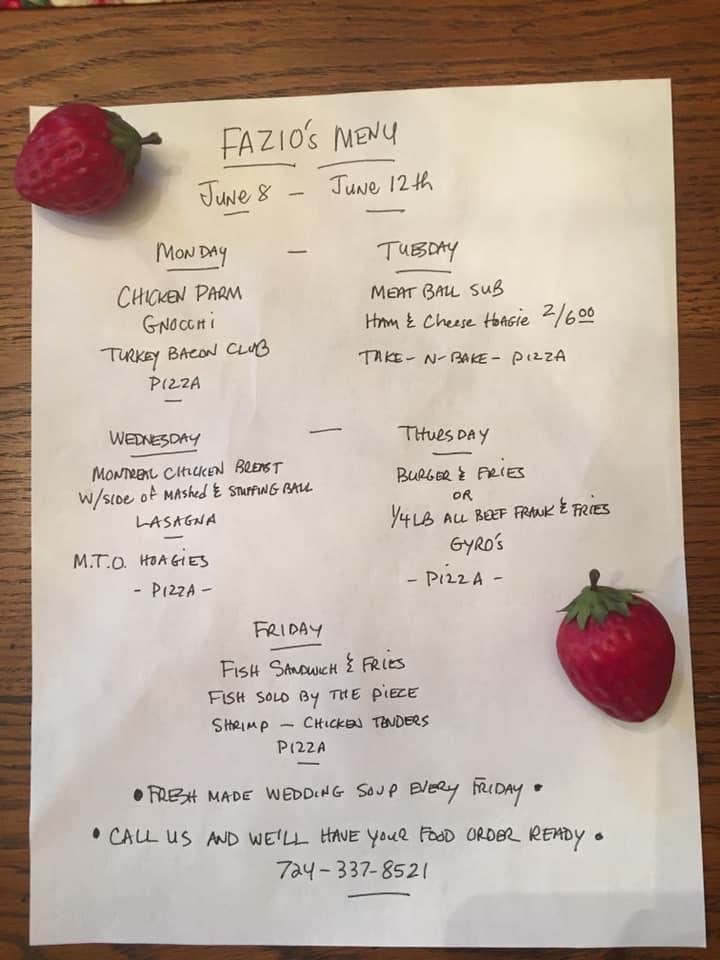 FAZIO'S MENU
JUNE 8 - JUNE 12th
MONDAY -
CHICKEN PARM
GNOCCHI
TURKEY BACON CLUB
PIZZA
TUESDAY
MEAT BALL SUB
HAM & CHEESE HOAGIE 2/6.00
TAKE-N-BAKE-PIZZA
WEDNESDAY -
MONTREAL CHICKEN BREAST
W/SIDE OF MASHED & STUFFING BALL
LASAGNA
M.T.O. HOAGIES
- PIZZA -
THURSDAY
BURGER & FRIES
OR
1/4 LB ALL BEEF FRANK & FRIES
GYRO'S
- PIZZA -
FRIDAY
FISH SANDWICH & FRIES
FISH SOLD BY THE PIECE
SHRIMP - CHICKEN TENDERS
PIZZA
• FRESH MADE WEDDING SOUP EVERY FRIDAY •
• CALL US AND WE'LL HAVE YOUR FOOD ORDER READY •
724-337-8521